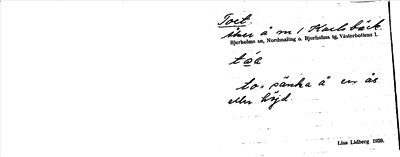 Toet.
sken å m / Karlsbäck
Bjurholms sn, Nordmaling o. Bjurholms tg, Västerbottens l.
to. sänka å en ås
eller höjd.
Lisa Lidberg 1939.